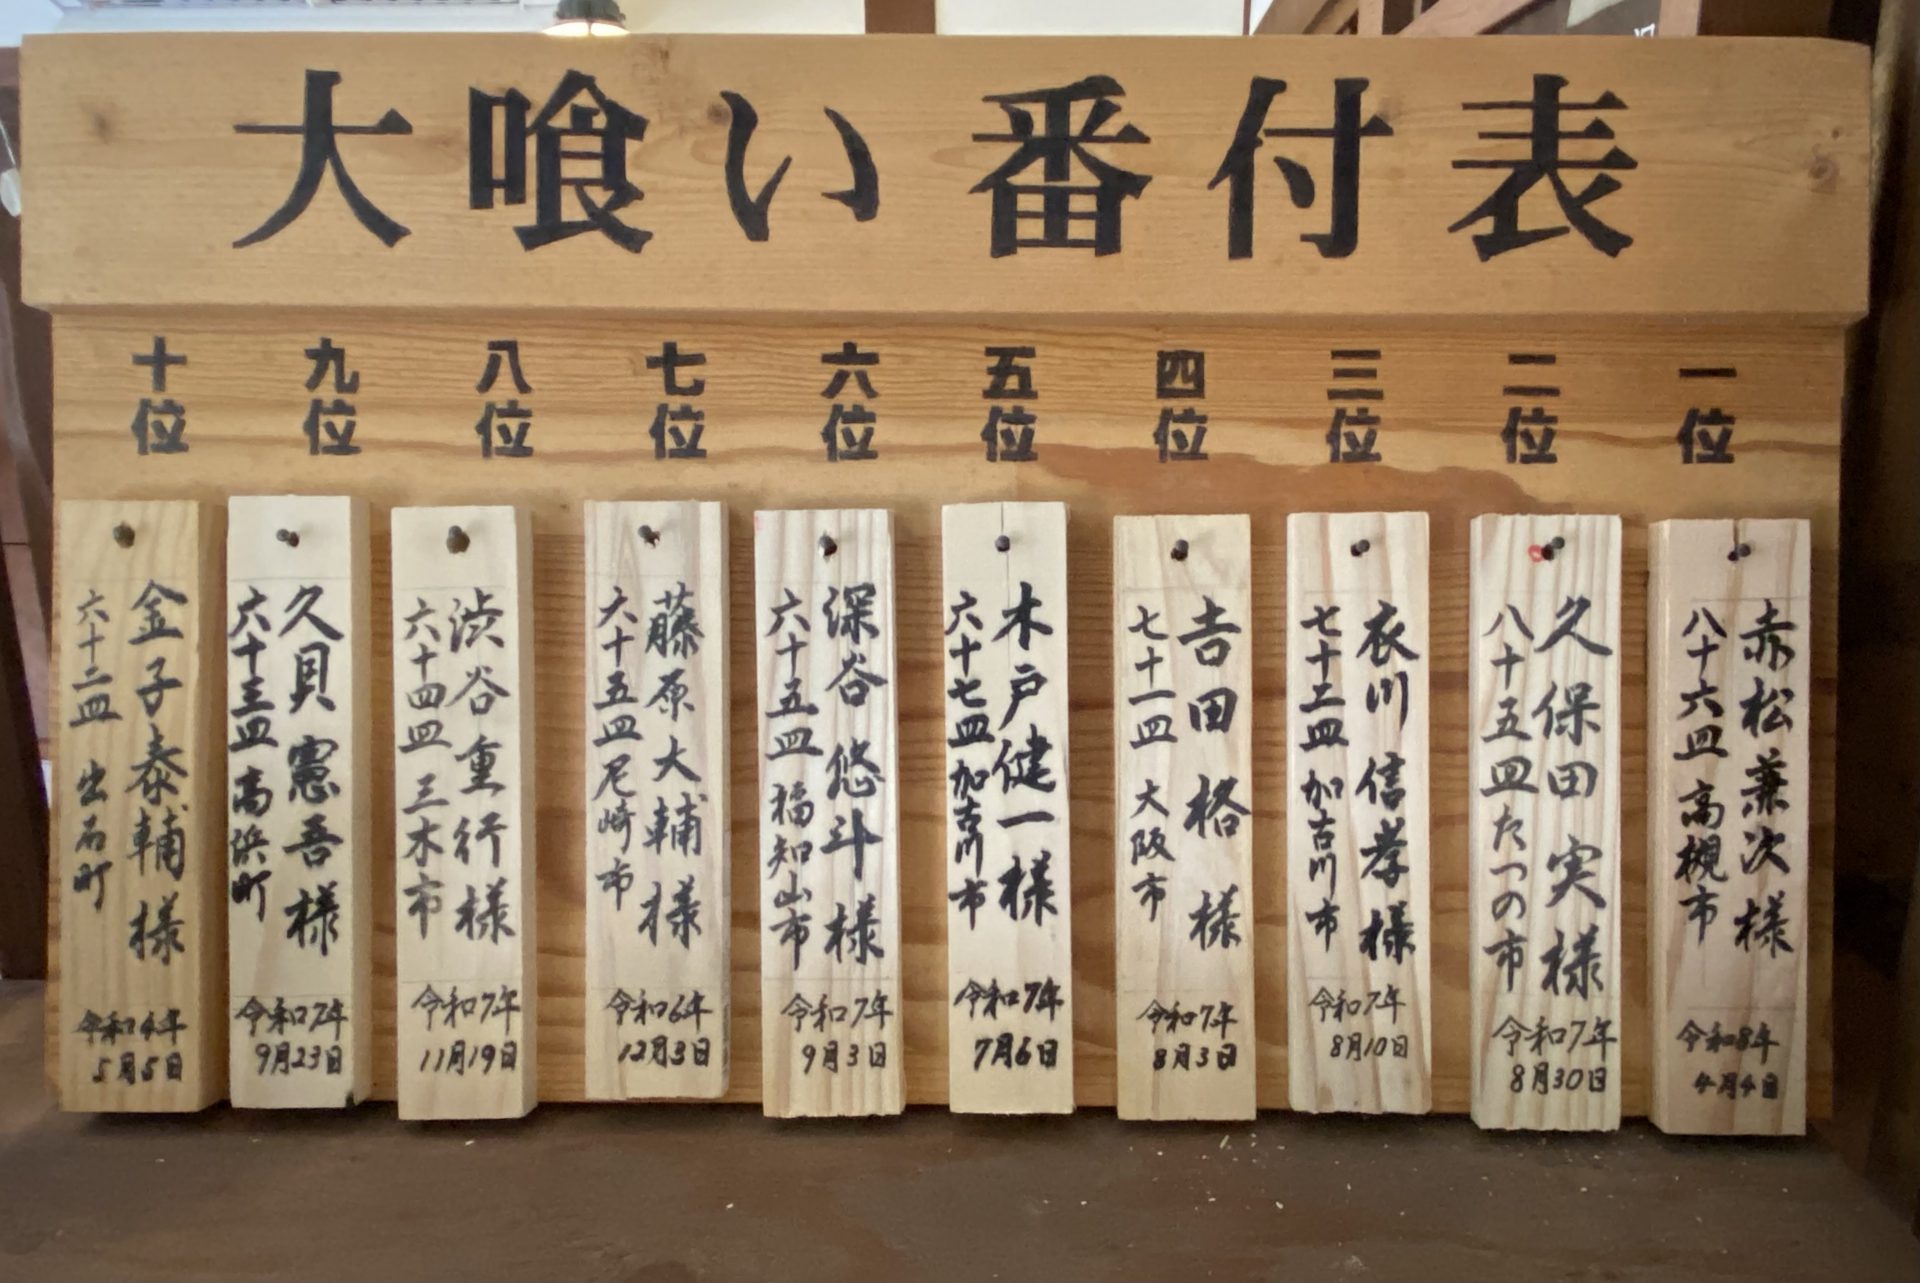 大喰い番付表
一位
赤松兼次様
八十六皿 高槻市
令和8年
4月4日
二位
久保田実様
八十五皿 たつの市
令和7年
8月30日
三位
衣川信孝様
七十二皿 加古川市
令和7年
8月10日
四位
吉田格様
七十一皿 大阪市
令和7年
8月3日
五位
木戸健一様
六十七皿 加古川市
令和7年
7月6日
六位
深谷悠斗様
六十五皿 福知山市
令和7年
9月3日
七位
藤原大輔様
六十五皿 尼崎市
令和6年
12月3日
八位
渋谷重行様
六十四皿 三木市
令和7年
11月19日
九位
久貝憲吾様
六十三皿 高浜町
令和7年
9月23日
十位
金子泰輔様
六十二皿 出石町
令和4年
5月5日